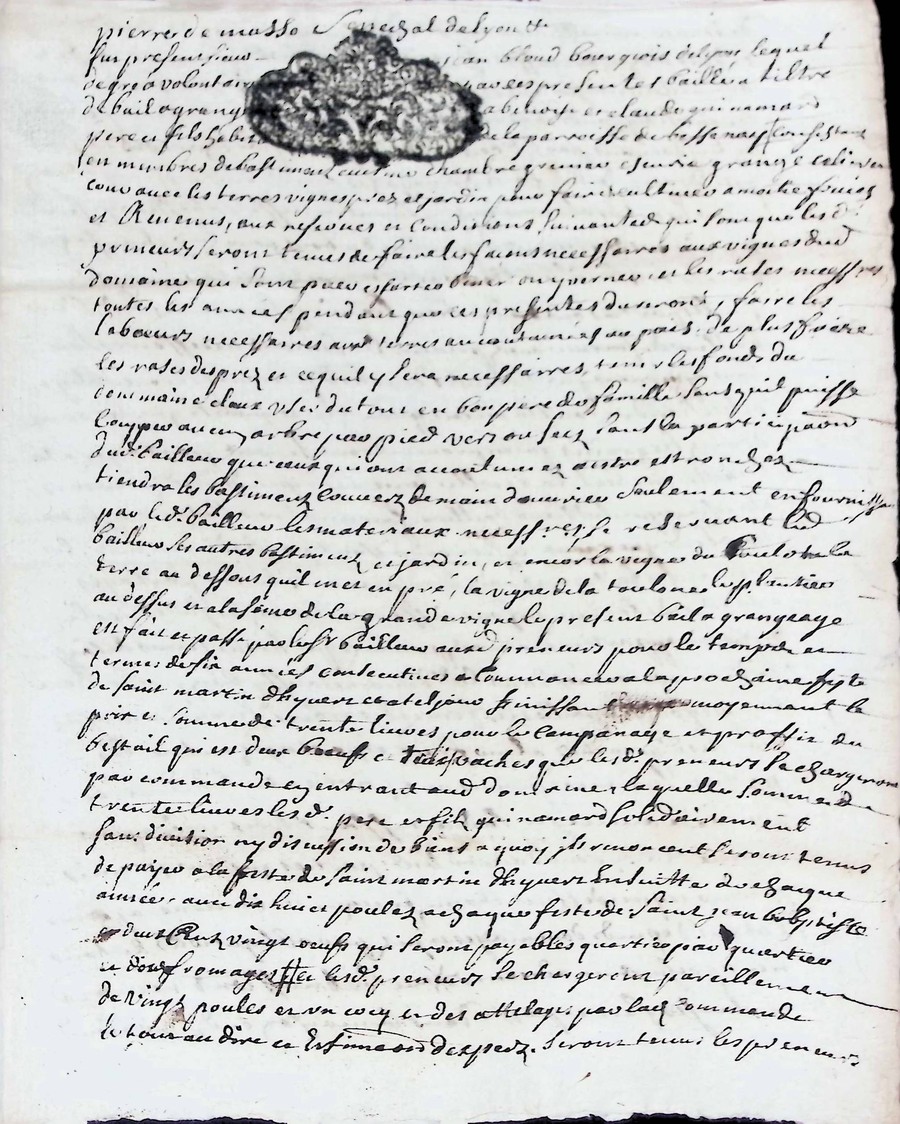 pierre de masso Senechal de Lyon
fut present sieur jean bloud bourgeois de Lyon lequel
de gré a volontair par les presentes baillé a tiltre
de bail a grang a benoist et claude quinamard
pere et fils habit de la parroisse de bessenay consistant
en membres de bastiment cuisine chambre grenier escurie grange
cour avec les terres vignes prez et jardin pour faire cultiver a moitié fruictz
et Revenus, aux reserves et conditions suivantes qui sont que lesd.
preneurs seront tenus de faire les façons necessaires aux vignes dud
domaine qui sont piocer biner ou yverner et les rases necessres
toutes les années pendant que ces presentes dureront, faire les
laboeurs necessaires aux terres accoutumées au pais, de plus faire
les rases des prez et ce quil y sera necessaires, tenir les fonds du
dommaine cloux user du tout en bon pere de famille sans quil puisse
coupper aucun arbre par pied vers ou secz sans la participaon
dud. bailleur que ceux qui ont accoutumez destre estronchez
tiendra les bastiments couverz de main douvrier seulement en fournissan
par led. bailleur les materiaux necessres, se reservant led
bailleur ses autres bastiments et jardin, et encor la vigne du la
terre au dessous quil met en pré, la vigne de la
au dessus et a la sôme de la grande vigne le present bail a grangeage
est fait et passé par led Sr bailleur ausd preneurs pour le temps et
termes de six années consecutives a commancer a la prochaine feste
de saint martin dhyvert et a tel jour finissan moyennant le
prix et somme de trente livres pour le campanage et proffit du
bestail qui est deux boeufs et trois vaches que lesd. preneurs se chargeront
par commande en entrant aud domaine, laquelle somme de
trente livres lesd. pere et filz quinamard solidairement
sans division ny discussion de biens a quoy ils renoncent seront tenus
de payer a la feste de saint martin dhyvert Ensuitte de chaque
année, avec dix huict poulez a chaque feste de saint jean babptiste
et deux Centz vingt oeufs qui seront payables quartier par quartier
et douze fromages # et lesd. preneurs se chargeront pareillement
de vingt poules et un coq et des attelages par lad commande
le tout au dire et Estimaon dexpertz. seront tenus les preneurs